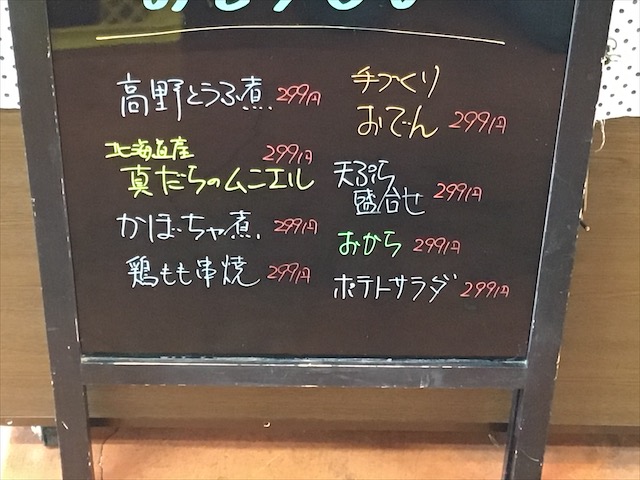 高野とうふ煮 299円
北海道産 299円
真だらのムニエル
かぼちゃ煮 299円
鶏もも串焼 299円
手づくり
おでん 299円
天ぷら
盛合せ 299円
おから 299円
ポテトサラダ 299円